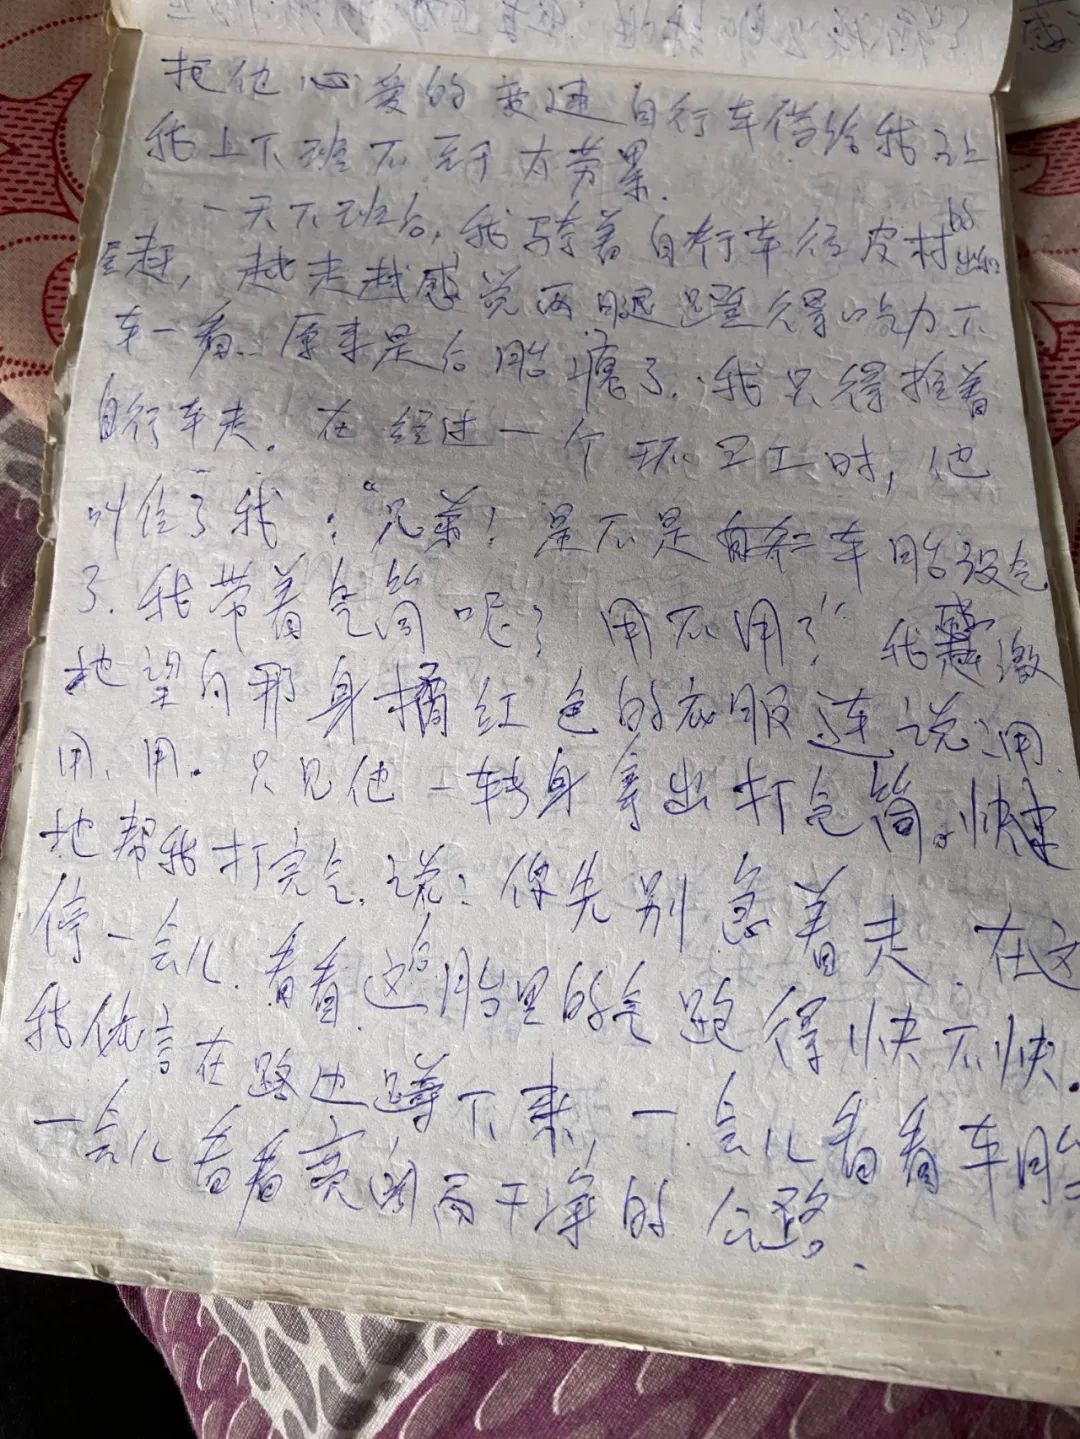 把他心爱的变速自行车借给我让
我上下班不至于太劳累.
一天下班后,我骑着自行车往皮村的出租
屋赶,越走越感觉两腿蹬得吃力.下
车一看.原来是后胎瘪了.我只得推着
自行车走.在经过一个环卫工时,他
叫住了我:“兄弟!是不是自行车胎没气
了.我带着气筒呢?用不用?”我感激
地望向那身橘红色的衣服连说:用
用、用.只见他一转身拿出打气筒。快速
地帮我打完气.说:你先别急着走.在这
停一会儿.看看这胎里的气跑得快不快.
我依言在路边蹲下来,一会儿看看车胎
一会儿看看亮阔而干净的公路。